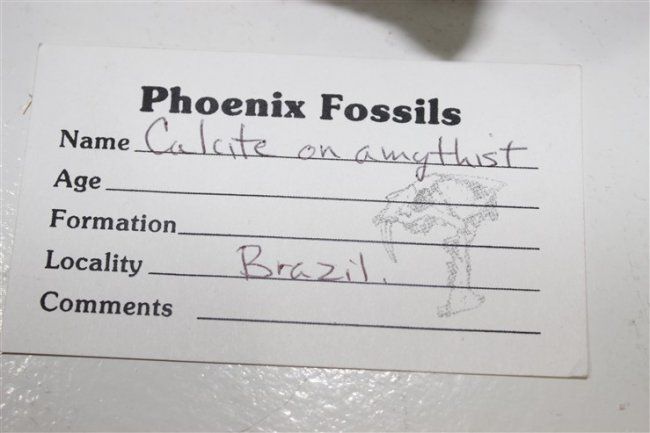 Phoenix Fossils
Name Calcite on amythist
Age
Formation
Locality Brazil.
Comments